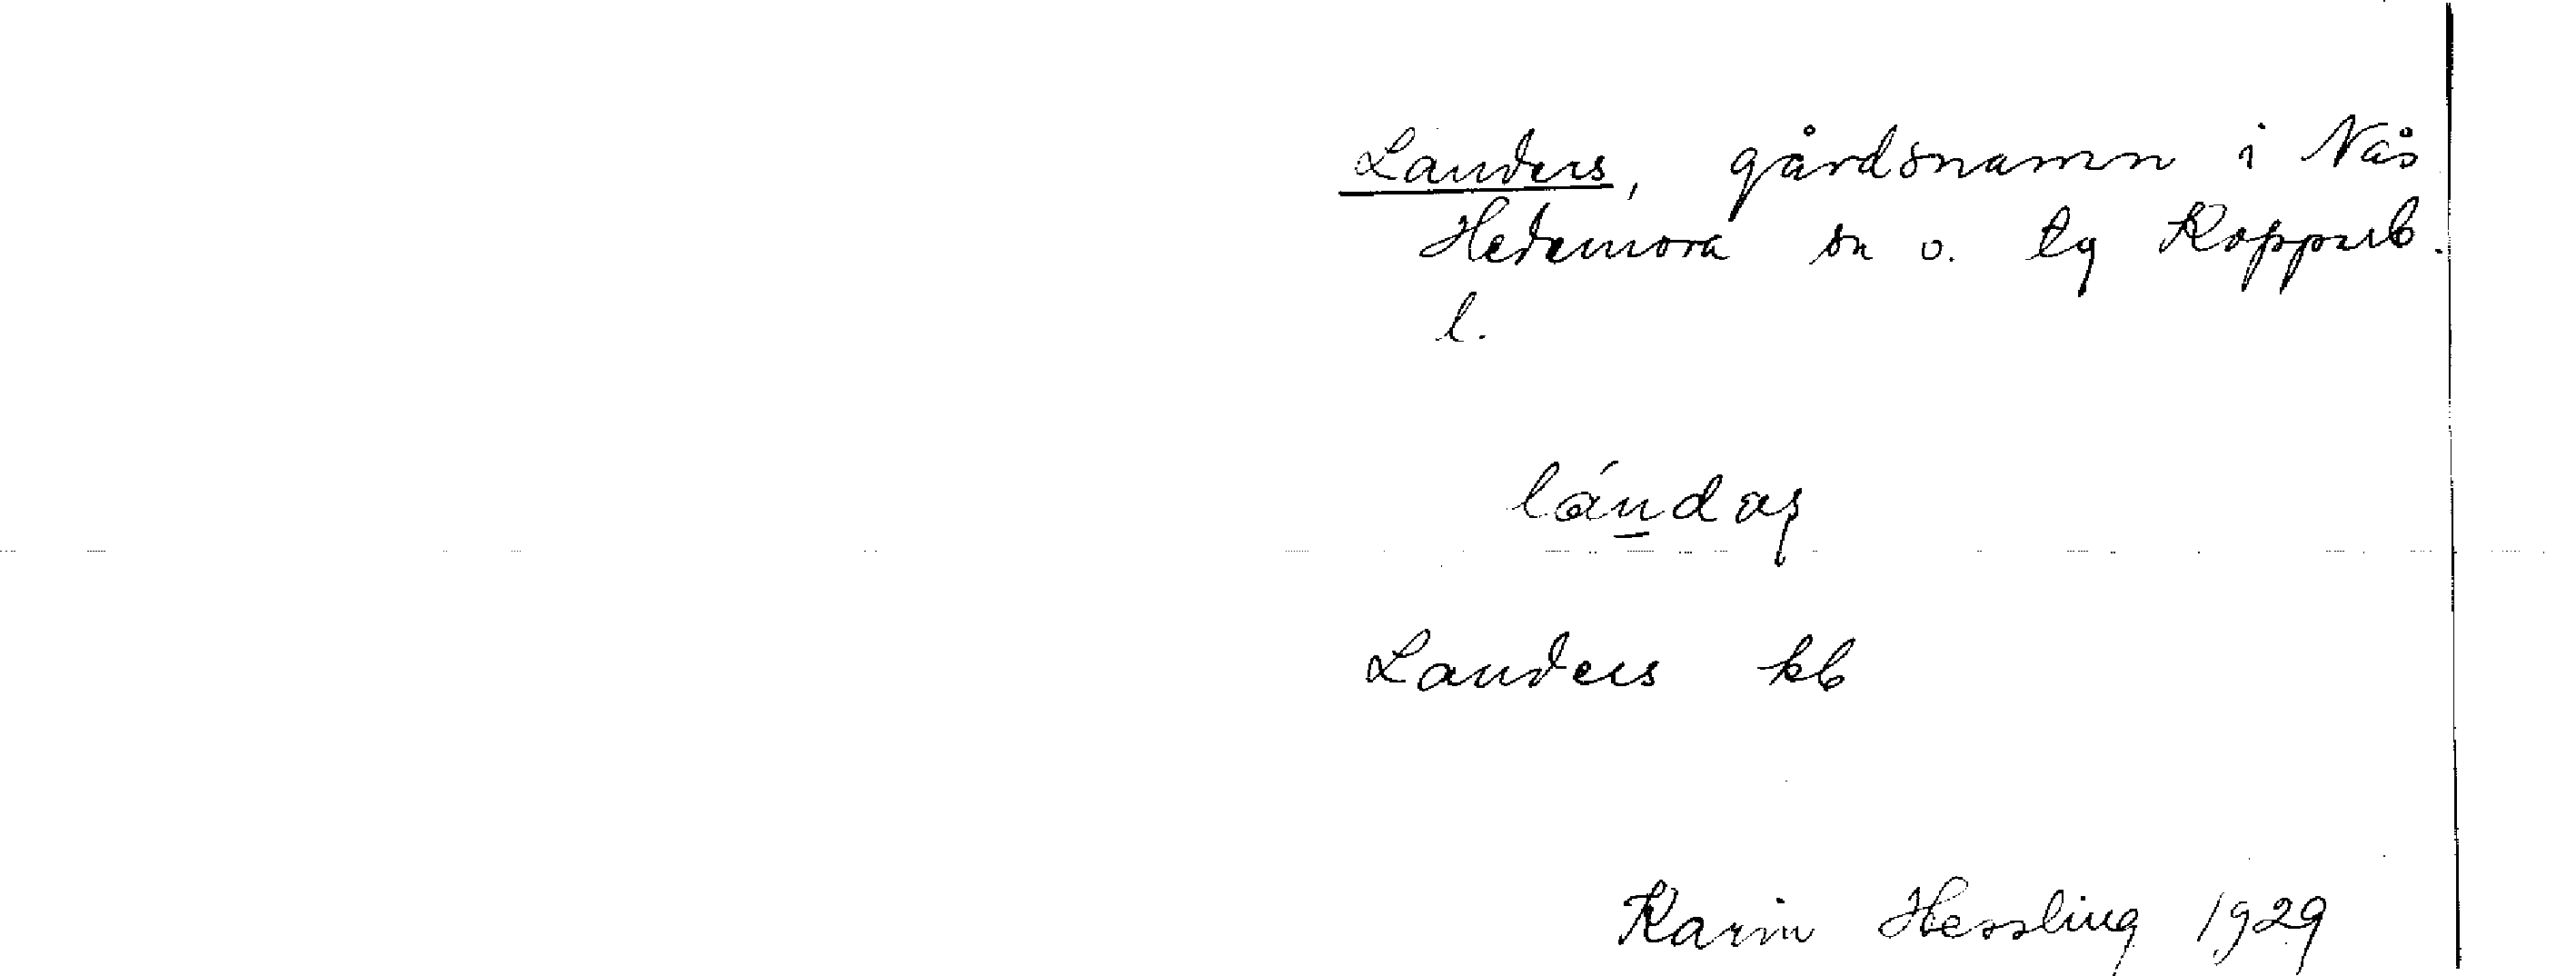 Landers, gårdsnamn i Nås
Hedemora sn o. tg Kopparb.
l.
Landers kb
Karin Hessling 1929